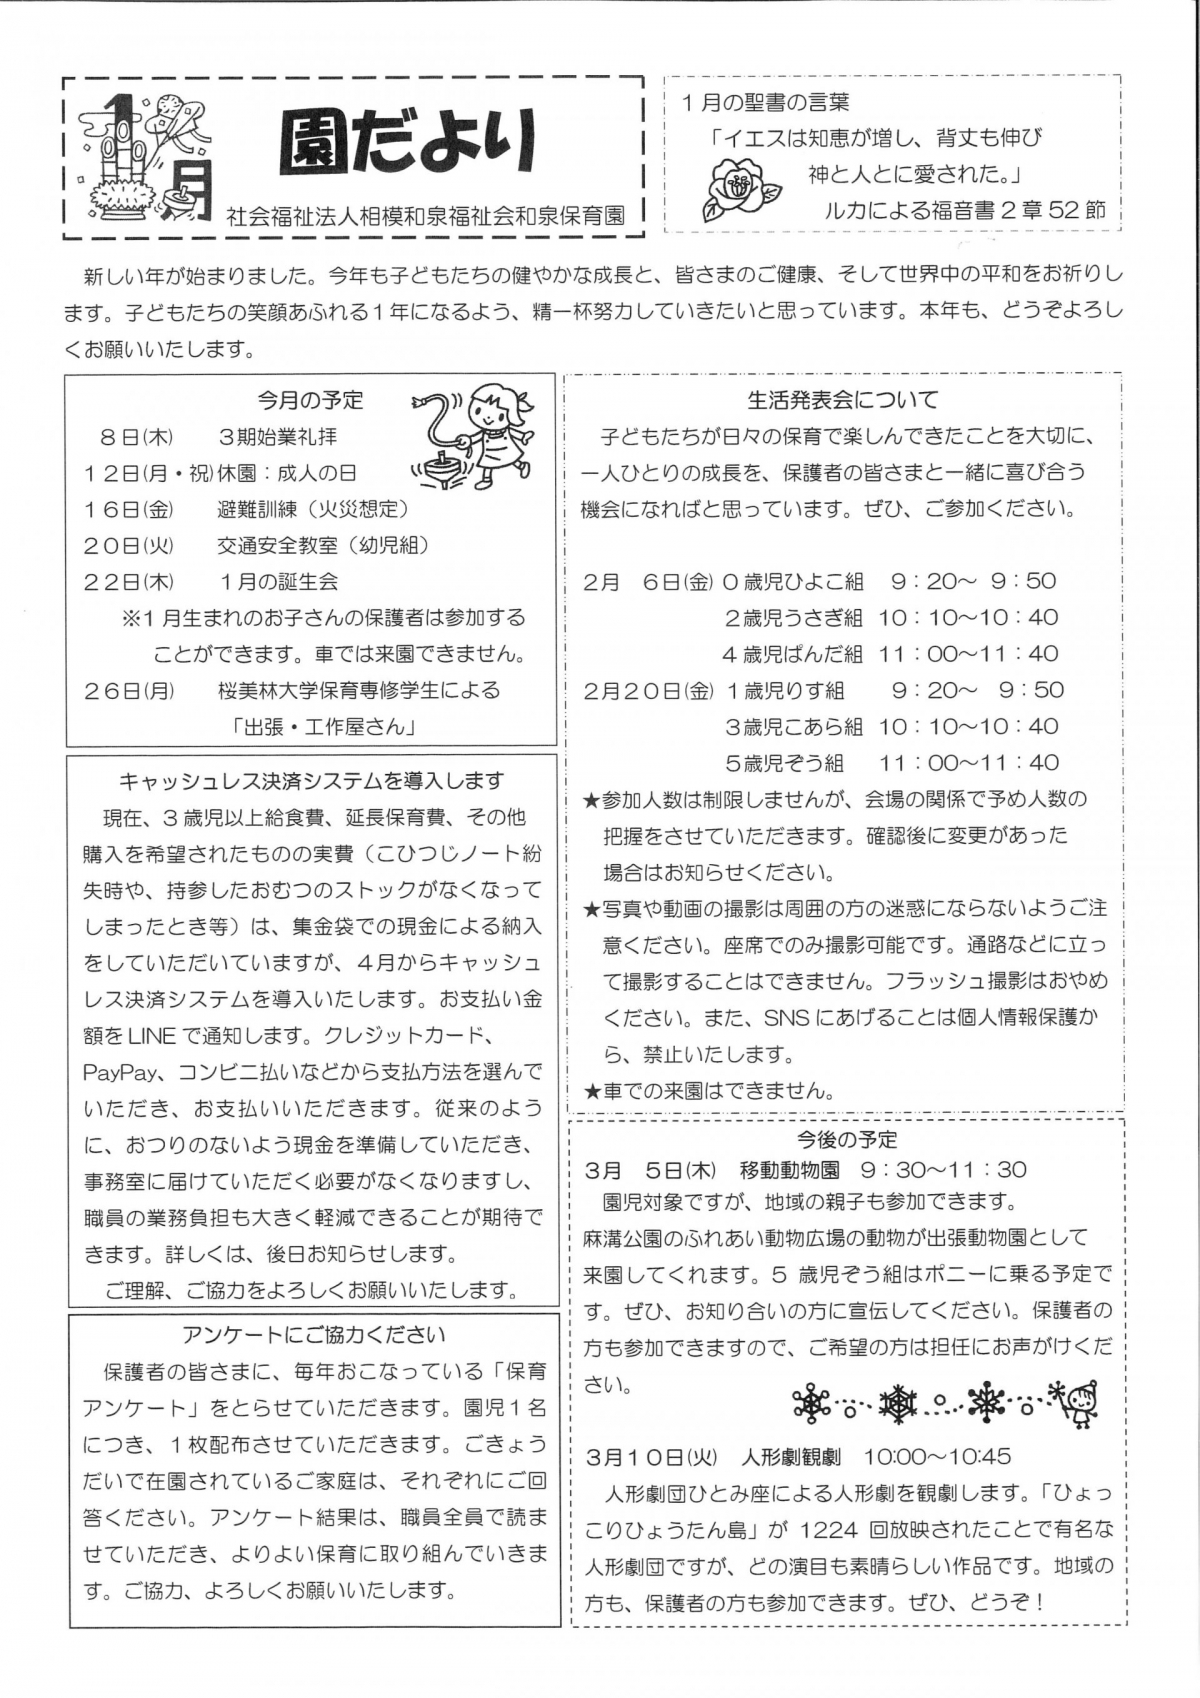 1月
園だより
社会福祉法人相模和泉福祉会和泉保育園
1月の聖書の言葉
「イエスは知恵が増し、背丈も伸び
神と人とに愛された。」
ルカによる福音書2章52節
新しい年が始まりました。今年も子どもたちの健やかな成長と、皆さまのご健康、そして世界中の平和をお祈りし
ます。子どもたちの笑顔あふれる1年になるよう、精一杯努力していきたいと思っています。本年も、どうぞよろし
くお願いいたします。
今月の予定
8日(木) 3期始業礼拝
12日(月・祝)休園：成人の日
16日(金) 避難訓練（火災想定）
20日(火) 交通安全教室（幼児組）
22日(木) 1月の誕生会
※1月生まれのお子さんの保護者は参加する
ことができます。車では来園できません。
26日(月) 桜美林大学保育専修学生による
「出張・工作屋さん」
キャッシュレス決済システムを導入します
現在、3歳児以上給食費、延長保育費、その他
購入を希望されたものの実費（こひつじノート紛
失時や、持参したおむつのストックがなくなって
しまったとき等）は、集金袋での現金による納入
をしていただいていますが、4月からキャッシュ
レス決済システムを導入いたします。お支払い金
額をLINEで通知します。クレジットカード、
PayPay、コンビニ払いなどから支払方法を選んで
いただき、お支払いいただきます。従来のよう
に、おつりのないよう現金を準備していただき、
事務室に届けていただく必要がなくなりますし、
職員の業務負担も大きく軽減できることが期待で
きます。詳しくは、後日お知らせします。
ご理解、ご協力をよろしくお願いいたします。
アンケートにご協力ください
保護者の皆さまに、毎年おこなっている「保育
アンケート」をとらせていただきます。園児1名
につき、1枚配布させていただきます。ごきょう
だいで在園されているご家庭は、それぞれにご回
答ください。アンケート結果は、職員全員で読ま
せていただき、よりよい保育に取り組んでいきま
す。ご協力、よろしくお願いいたします。
生活発表会について
子どもたちが日々の保育で楽しんできたことを大切に、
一人ひとりの成長を、保護者の皆さまと一緒に喜び合う
機会になればと思っています。ぜひ、ご参加ください。
2月 6日(金) 0歳児ひよこ組 9：20～ 9：50
2歳児うさぎ組 10：10～10：40
4歳児ぱんだ組 11：00～11：40
2月20日(金) 1歳児りす組 9：20～ 9：50
3歳児こあら組 10：10～10：40
5歳児ぞう組 11：00～11：40
★参加人数は制限しませんが、会場の関係で予め人数の
把握をさせていただきます。確認後に変更があった
場合はお知らせください。
★写真や動画の撮影は周囲の方の迷惑にならないようご注
意ください。座席でのみ撮影可能です。通路などに立っ
て撮影することはできません。フラッシュ撮影はおやめ
ください。また、SNSにあげることは個人情報保護か
ら、禁止いたします。
★車での来園はできません。
今後の予定
3月 5日(木) 移動動物園 9：30～11：30
園児対象ですが、地域の親子も参加できます。
麻溝公園のふれあい動物広場の動物が出張動物園として
来園してくれます。5 歳児ぞう組はポニーに乗る予定で
す。ぜひ、お知り合いの方に宣伝してください。保護者の
方も参加できますので、ご希望の方は担任にお声がけくだ
さい。
3月10日(火) 人形劇観劇 10:00～10:45
人形劇団ひとみ座による人形劇を観劇します。「ひょっ
こりひょうたん島」が 1224 回放映されたことで有名な
人形劇団ですが、どの演目も素晴らしい作品です。地域の
方も、保護者の方も参加できます。ぜひ、どうぞ！